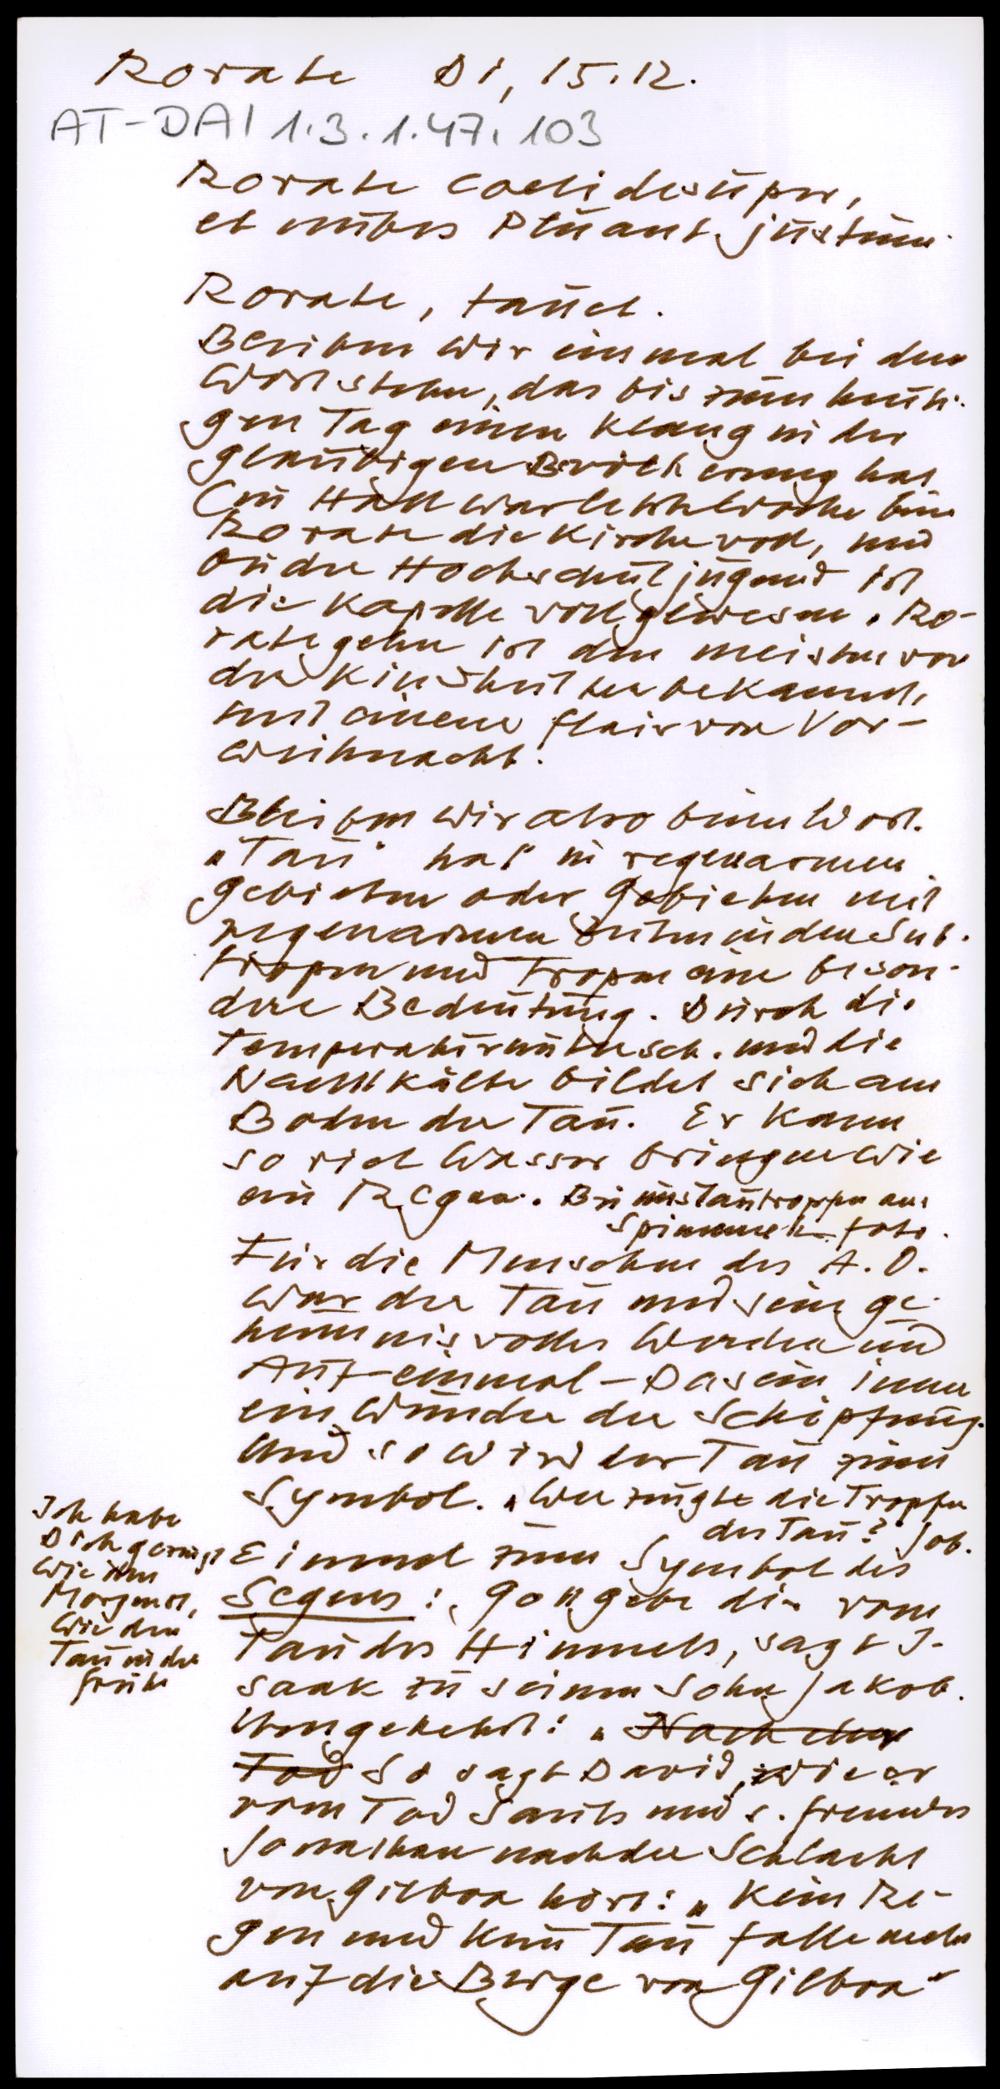 Rorate Di, 15.12.
AT-DAI 1.3.1.47.103
Rorate coeli desuper,
et nubes pluant justum.
Rorate, tauet.
Bleiben wir einmal bei dem
Wort stehen, das bis zum heuti-
gen Tag einen Klang in der
gläubigen Bevölkerung hat
(in Hall war letzte Woche beim
Rorate die Kirche voll, und
bei der Hochschuljugend ist
die Kapelle voll gewesen. Ro-
rategehen ist den meisten von
der Kindheit her bekannt,
mit einem Flair von Vor-
weihnacht.
Bleiben wir also beim Wort.
"Tau" hat in regenarmen
Gebieten oder Gebieten mit
regenarmen Zeiten in den Sub-
tropen und Tropen eine beson-
dere Bedeutung. Durch die
Temperaturuntersch. und die
Nachtkälte bildet sich am
Boden der Tau. Er kann
so viel Wasser bringen wie
ein Regen. Bei uns Tautropfen am
Spinnnetz Foto.
Für die Menschen des A. O.
war der Tau und sein ge-
heimnisvolles Werden und
Auf-einmal-Dasein immer
ein Wunder der Schöpfung.
Und so wird der Tau zum
Symbol. "Wer zeugte die Tropfen
des Tau?" Job.
Ich habe
Dich gezeugt
wie den
Morgenst,
wie den
Tau in der
Frühe
Einmal zum Symbol des
Segens: "Gott gebe dir vom
Tau des Himmels, sagt I-
saak zu seinem Sohn Jakob.
Umgekehrt: "Nach dem
Tod So sagt David, wie er
vom Tod Sauls und s. Freundes
Jonathan nach der Schlacht
von Gilboa hört: "Kein Re-
gen und kein Tau falle mehr
auf die Berge von Gilboa"